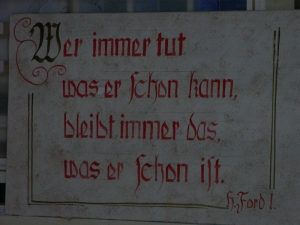 Wer immer tut
was er schon kann,
bleibt immer das,
was er schon ist.
H. Ford I.